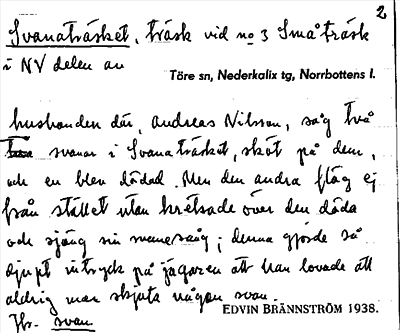 2
Svanaträsket, träsk vid no 3 Småträsk
i NV delen av
Töre sn, Nederkalix tg, Norrbottens l.
husbonden där, Andreas Nilsson, såg två
svanar i Svanaträsket, sköt på dem,
och en blev dödad. Men den andra flög ej
från stället utan kretsade över den döda
och sjöng sin svanesång; denna gjorde så
djupt intryck på jägaren att han lovade att
aldrig mer skjuta någon svan.
Jfr. svan.
EDVIN BRÄNNSTRÖM 1938.